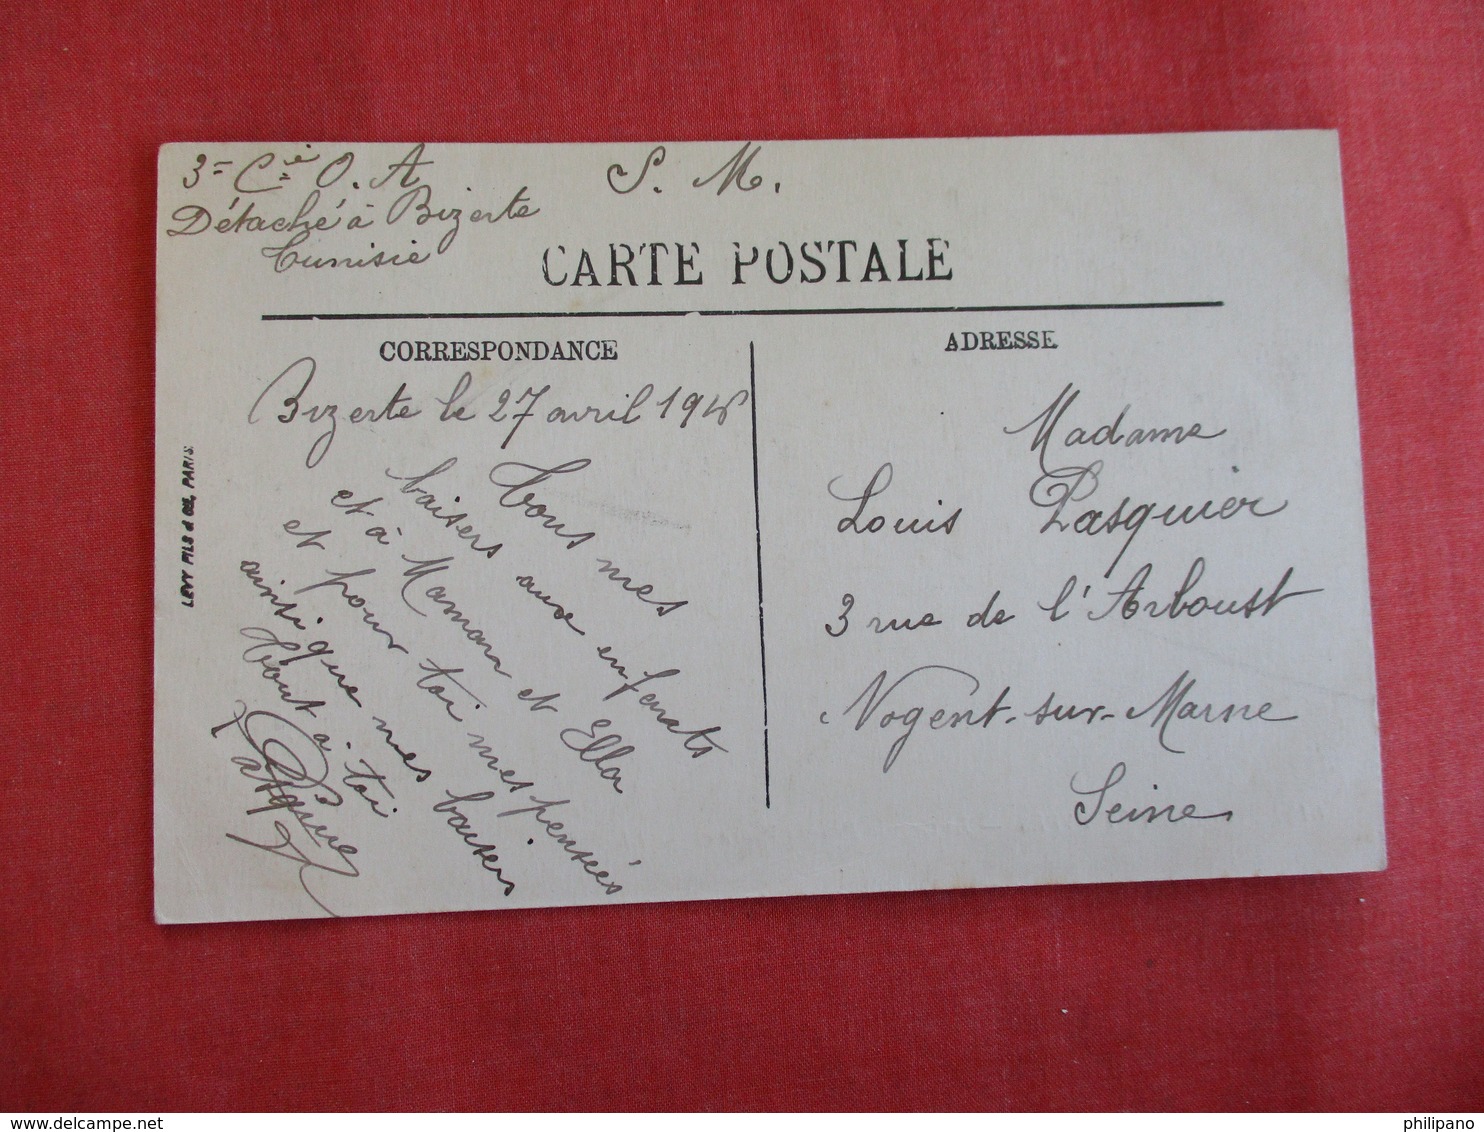 3e Cie O. A
S. M.
Détaché à Bizerte
Tunisie
CARTE POSTALE
CORRESPONDANCE
ADRESSE
Bizerte le 27 avril 1916
Tous mes
baisers aux enfants
et à Maman et Ella
et pour toi mes pensées
ainsi que mes baisers
Tout à toi
Pasquier
Madame
Louis Pasquier
3 rue de l'Arboust
Nogent-sur-Marne
Seine
LEVY FILS & CIE, PARIS
philipano